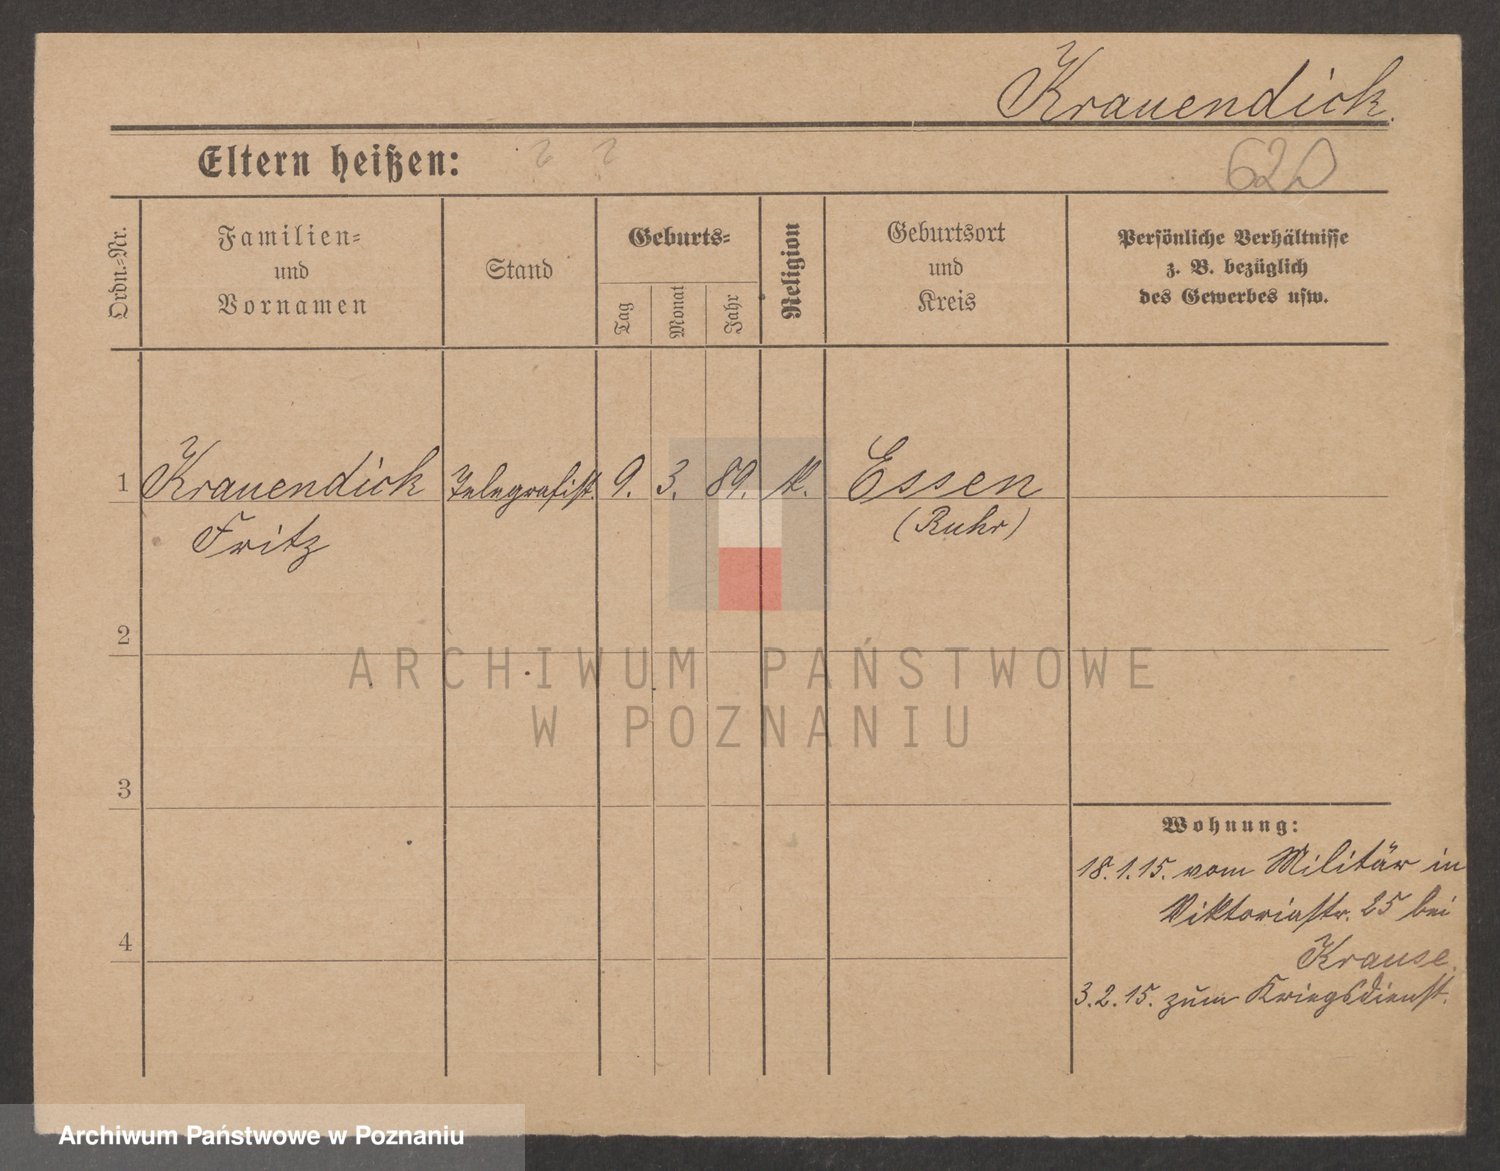 Krauendick.
Eltern heißen: ? ?
620
Ordn.=Nr.
Familien=
und
Vornamen
Stand
Geburts=
Tag
Monat
Jahr
Religion
Geburtsort
und
Kreis
Persönliche Verhältnisse
z. B. bezüglich
des Gewerbes usw.
1 Krauendick Telegrafist. 9. 3. 89. Essen
Fritz (Ruhr)
2
3
4
Wohnung:
18.1.15. vom Militär in
Viktoriastr. 25 bei
Krause.
3.2.15. zum Kriegsdienst.
ARCHIWUM PAŃSTWOWE
W POZNANIU
Archiwum Państwowe w Poznaniu